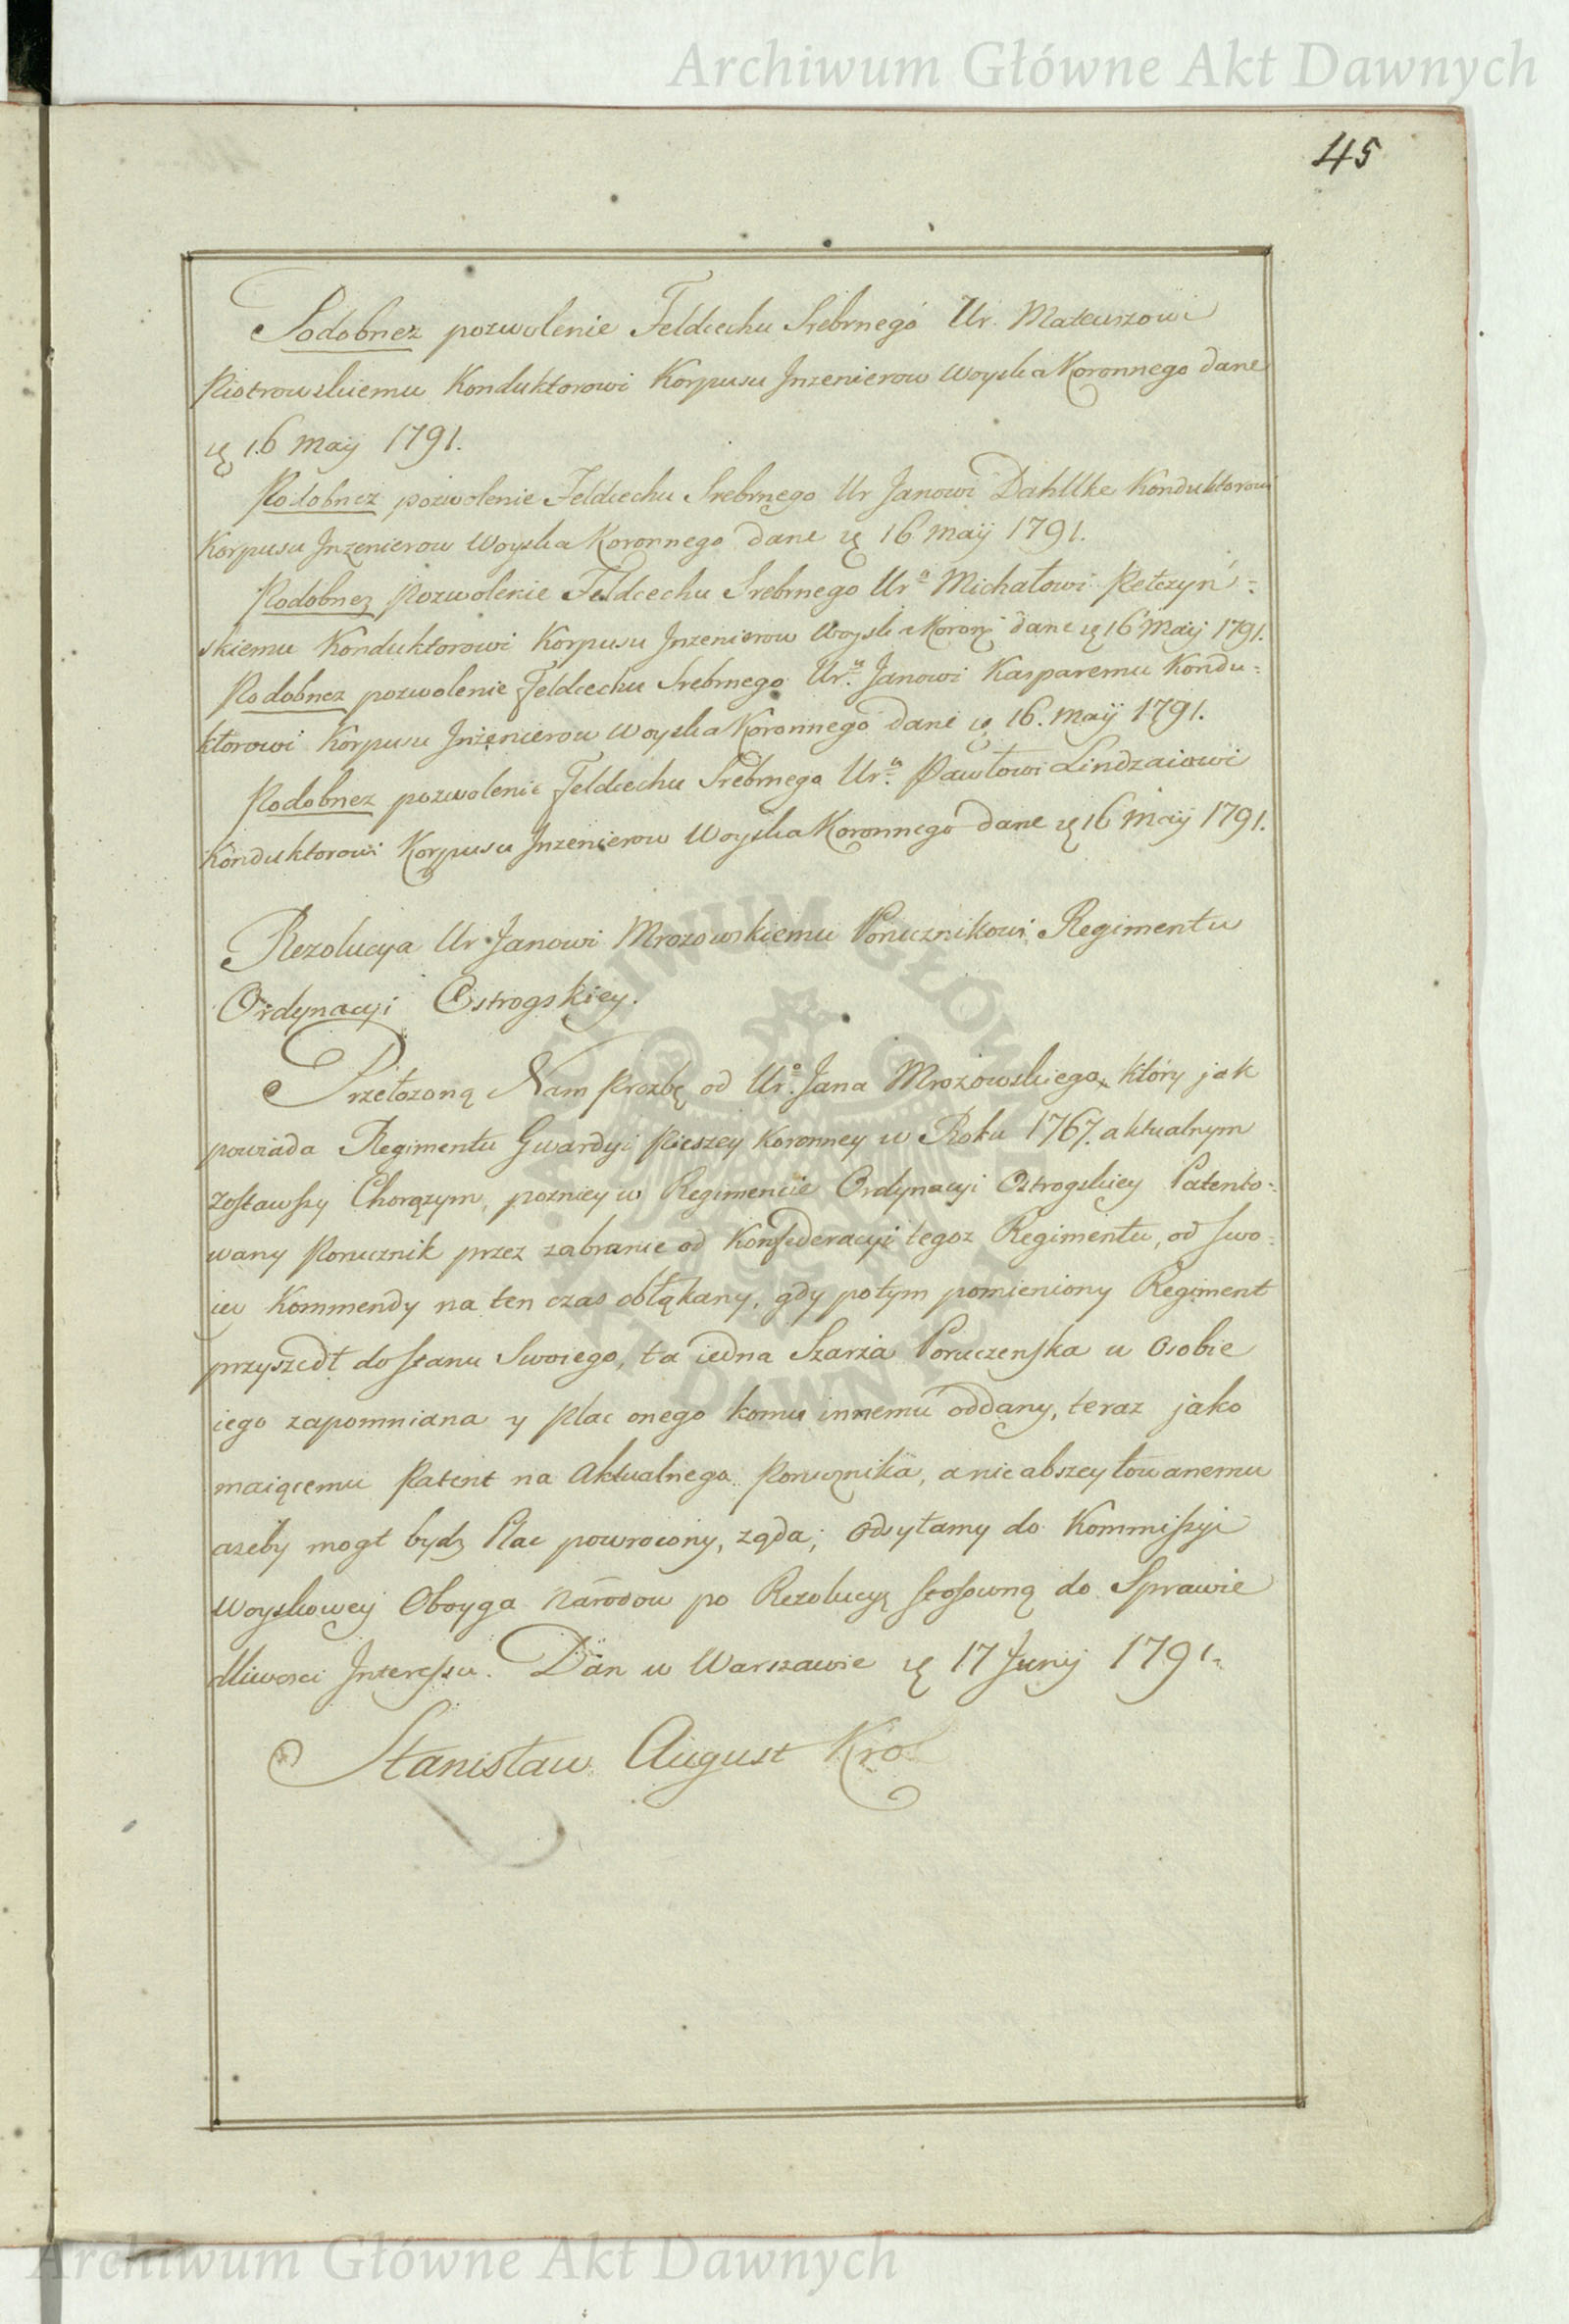 Archiwum Główne Akt Dawnych
45
Podobneż pozwolenie Feldcechu Srebrnego Ur. Mateuszowi
Piotrowskiemu Konduktorowi Korpusu Jnzenierow Woyska Koronnego dane
16 Maij 1791.
Podobnez pozwolenie Feldcechu Srebrnego Ur Janowi Dahllke Konduktorowi
Korpusu Jnzenierow Woyska Koronnego dane 16 Maij 1791.
Podobnez Pozwolenie Feldcechu Srebrnego Ur Michałowi Pełczyń=
skiemu Konduktorowi Korpusu Jnzenierow Woyska Koron dane 16 Maij 1791.
Podobnez pozwolenie Feldcechu Srebrnego Ur Janowi Kasparemu Kondu=
ktorowi Korpusu Jnżenierow Woyska Koronnego dane 16. Maij 1791.
Podobnez pozwolenie Feldcechu Srebrnego Ur Pawłowi Lindzaiowi
Konduktorowi Korpusu Jnzenierow Woyska Koronnego dane 16 Maij 1791.
Rezolucya Ur Janowi Mrozowskiemu Porucznikowi Regimentu
Ordynacyi Ostrogskiey.
Przełozoną Nam Prozbę od Ur. Jana Mrozowskiego, który jak
powiada Regimentu Gwardyi Pieszey Koronney w Roku 1767. aktualnym
zostawszy Chorązym, pozniey w Regimencie Ordynacyi Ostrogskiey Patento=
wany Porucznik przez zabranie od Konfederacyi tegoz Regimentu, od swo=
iey Kommendy na ten czas obłąkany, gdy potym pomieniony Regiment
przyszedł do stanu Swoiego, ta iedna Szarża Poruczenska w Osobie
iego zapomniana y Plac onego komu innemu oddany, teraz jako
maiącemu Patent na Aktualnego Porucznika, a nie abszeytowanemu
azeby mogł bydz Plac powrocony, ząda; Odsyłamy do Kommissyi
Woyskowey Oboyga Narodow po Rezolucyą stosowną do Sprawie
dliwosci Jnteressu. Dan w Warszawie 17 Junij 1791.
Stanisław August Krol
ARCHIWUM GŁÓWNE AKT DAWNYCH
Archiwum Główne Akt Dawnych